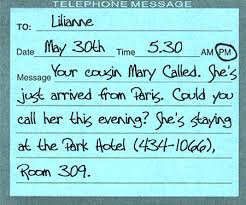 TELEPHONE MESSAGE
TO: Lilianne
Date May 30th Time 5.30 AM PM
Message Your cousin Mary Called. She's
just arrived from Paris. Could you
call her this evening? She's staying
at the Park Hotel (434-1066),
Room 309.